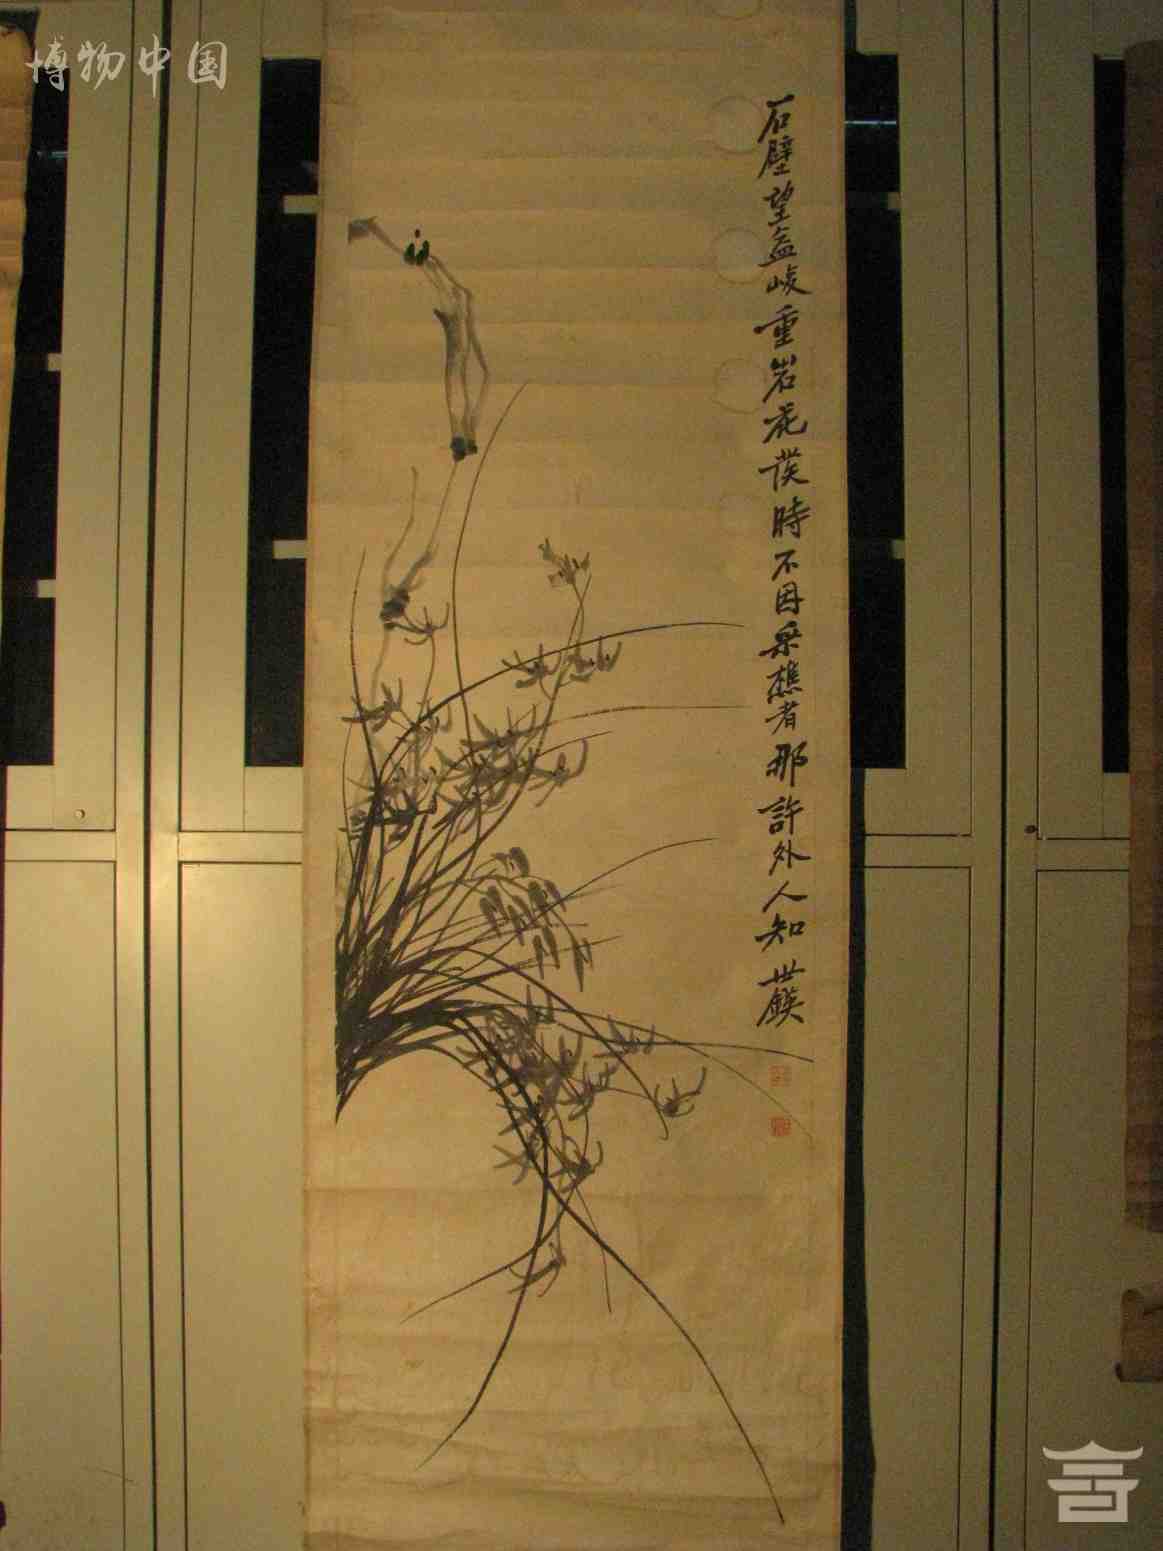 博物中国
石壁望益峻重岩花谟時不因采樵者那許外人知 世鍈